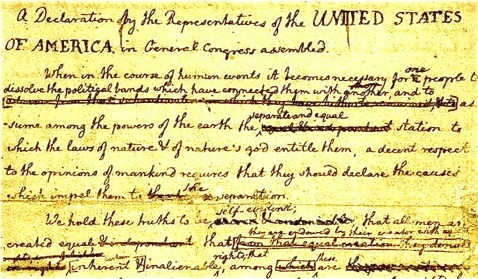 A Declaration by the Representatives of the UNITED STATES
OF AMERICA, in General Congress assembled.
one
When in the course of human events it becomes necessary for a people t
dissolve the political bands which have connected them with another, and to
as
separate and equal
sume among the powers of the earth the station to
which the laws of nature & of nature's god entitle them, a decent respect
to the opinions of mankind requires that they should declare the causes
the
which impel them to separation.
self-evident;
We hold these truths to be sacred & undeniable that all men ar
they are endowed by their creator with
created equal & independent that from that equal creation they derive
rights; that these
inherent & inalienable, among which are